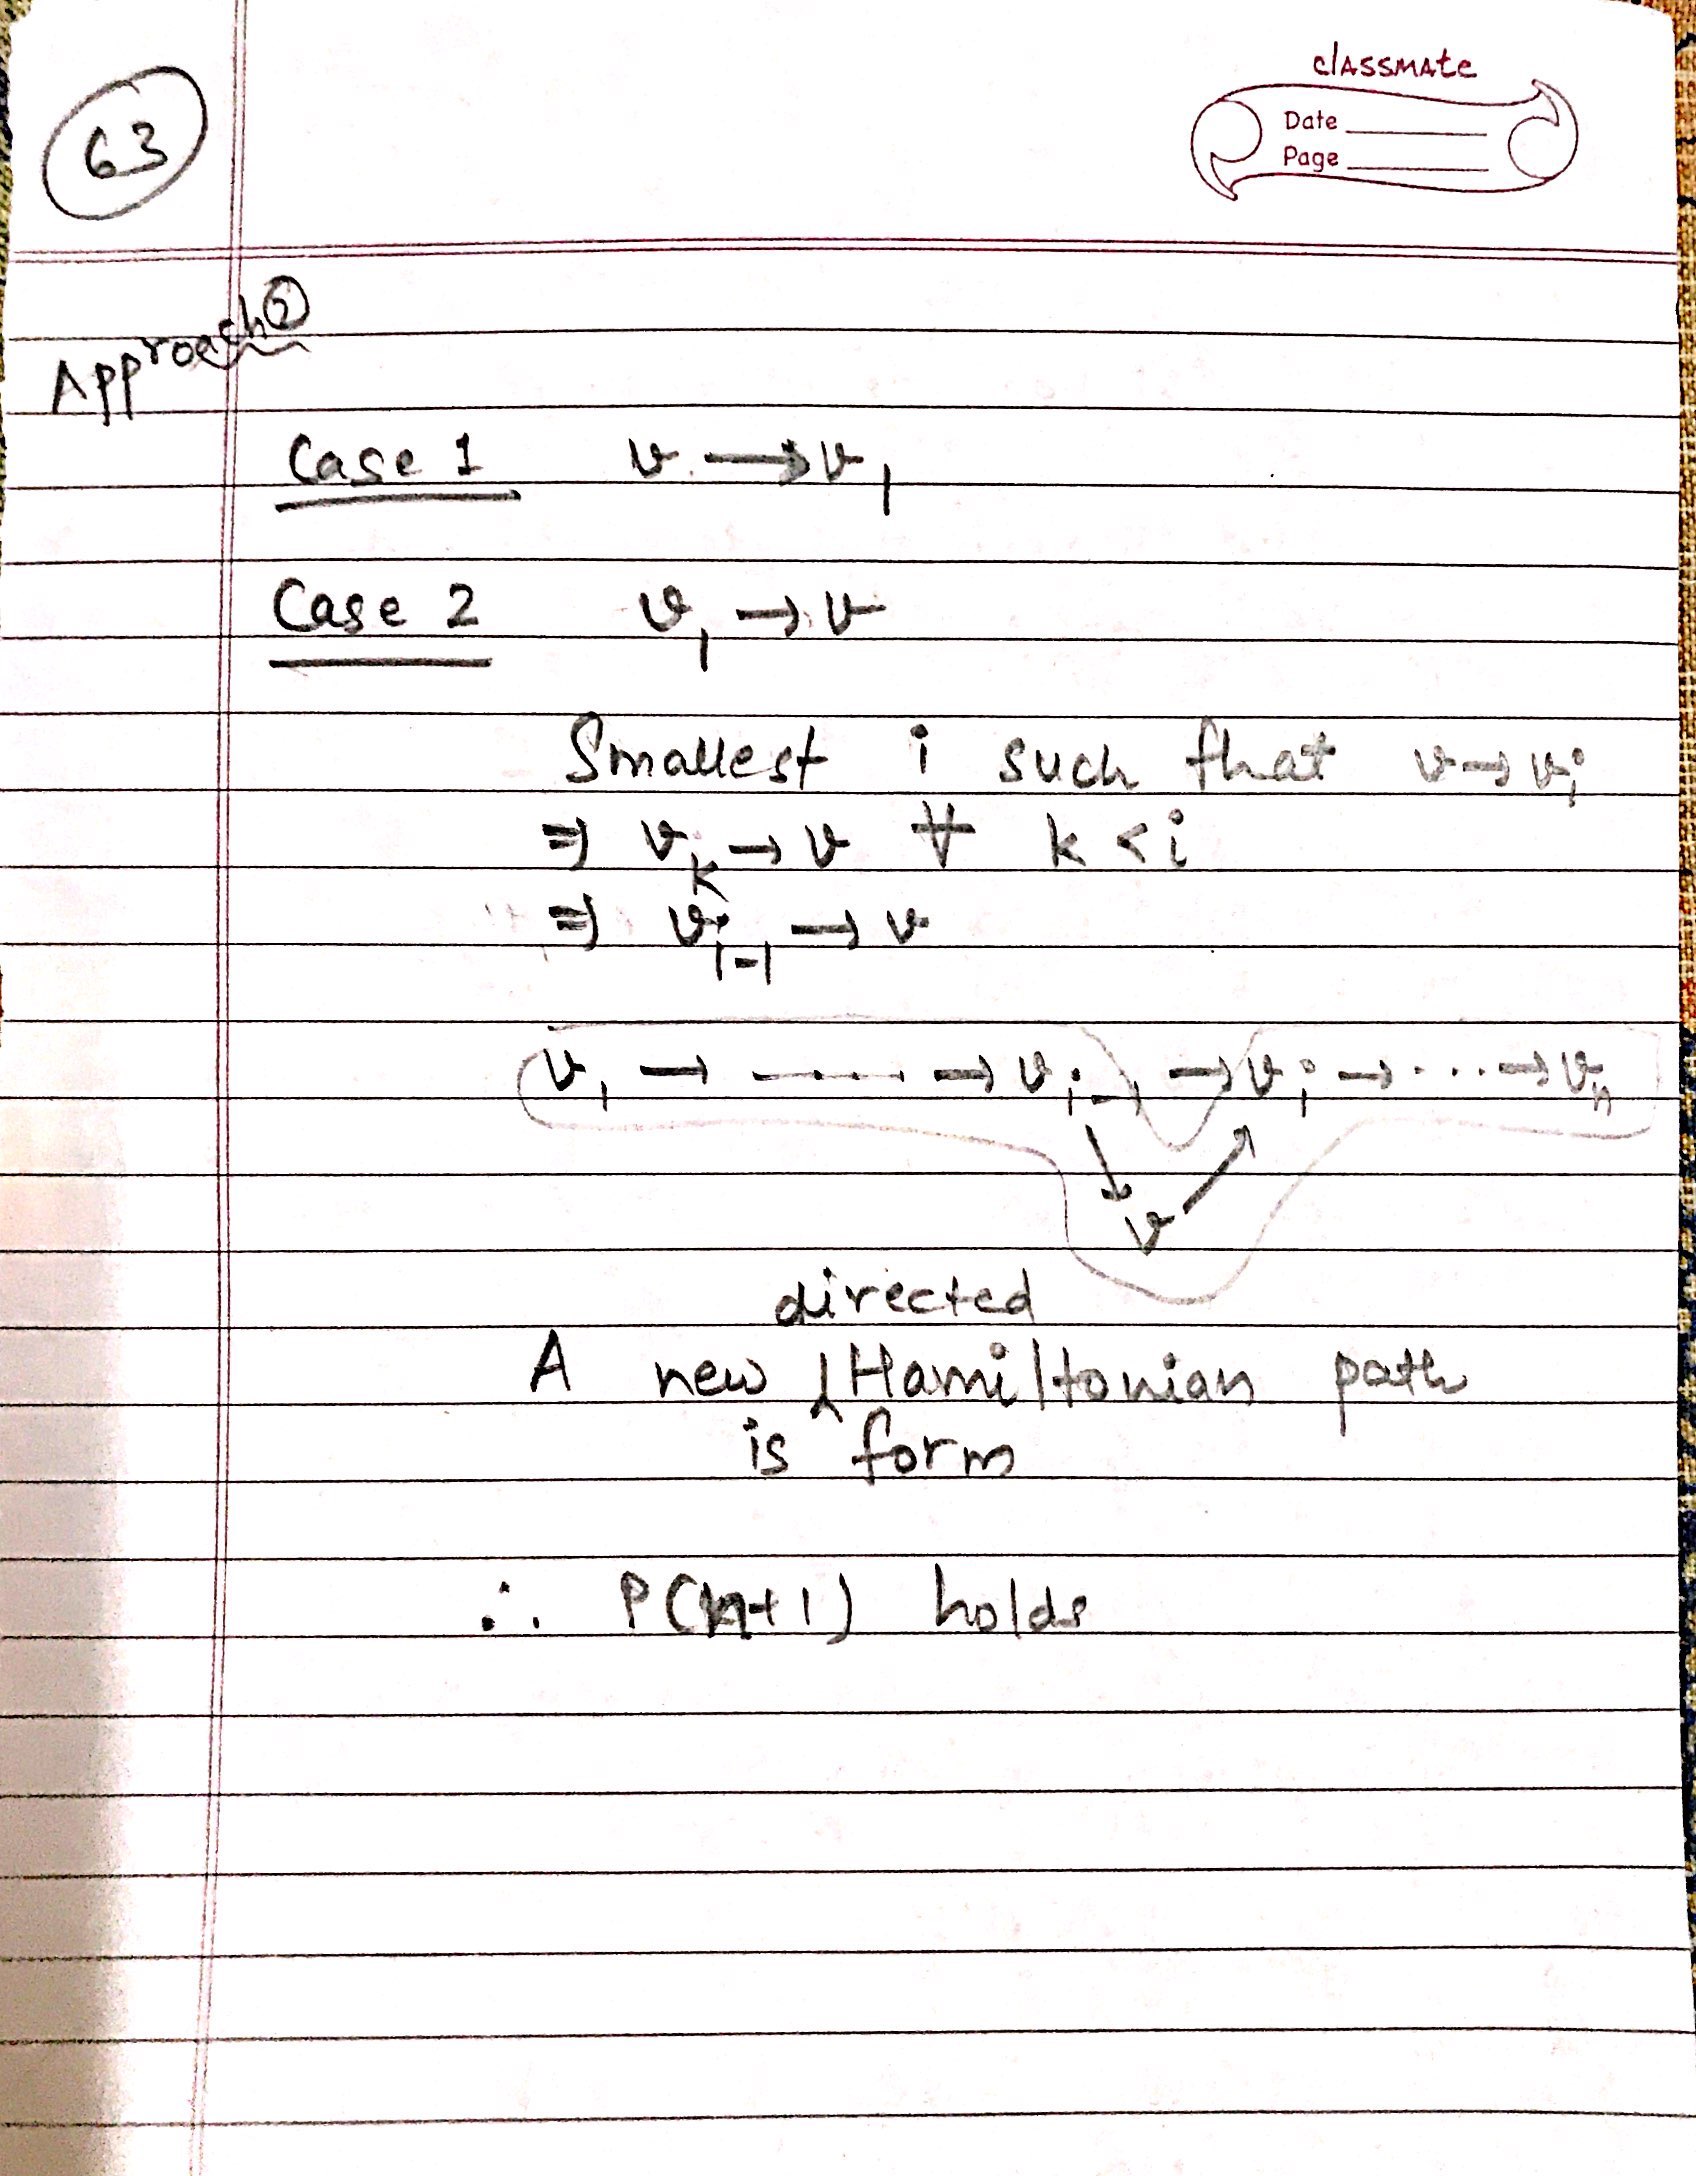 63
classmate
Date
Page
Approach ②
Case 1 v → v₁
Case 2 v₁ → v
Smallest i such that v → vᵢ
⇒ vₖ → v ∀ k < i
⇒ vᵢ₋₁ → v
v₁ → ...... → vᵢ₋₁ → vᵢ → .... → vₙ
↓ ↗
v
directed
A new ⁁ Hamiltonian path
is form
∴ P(n+1) holds